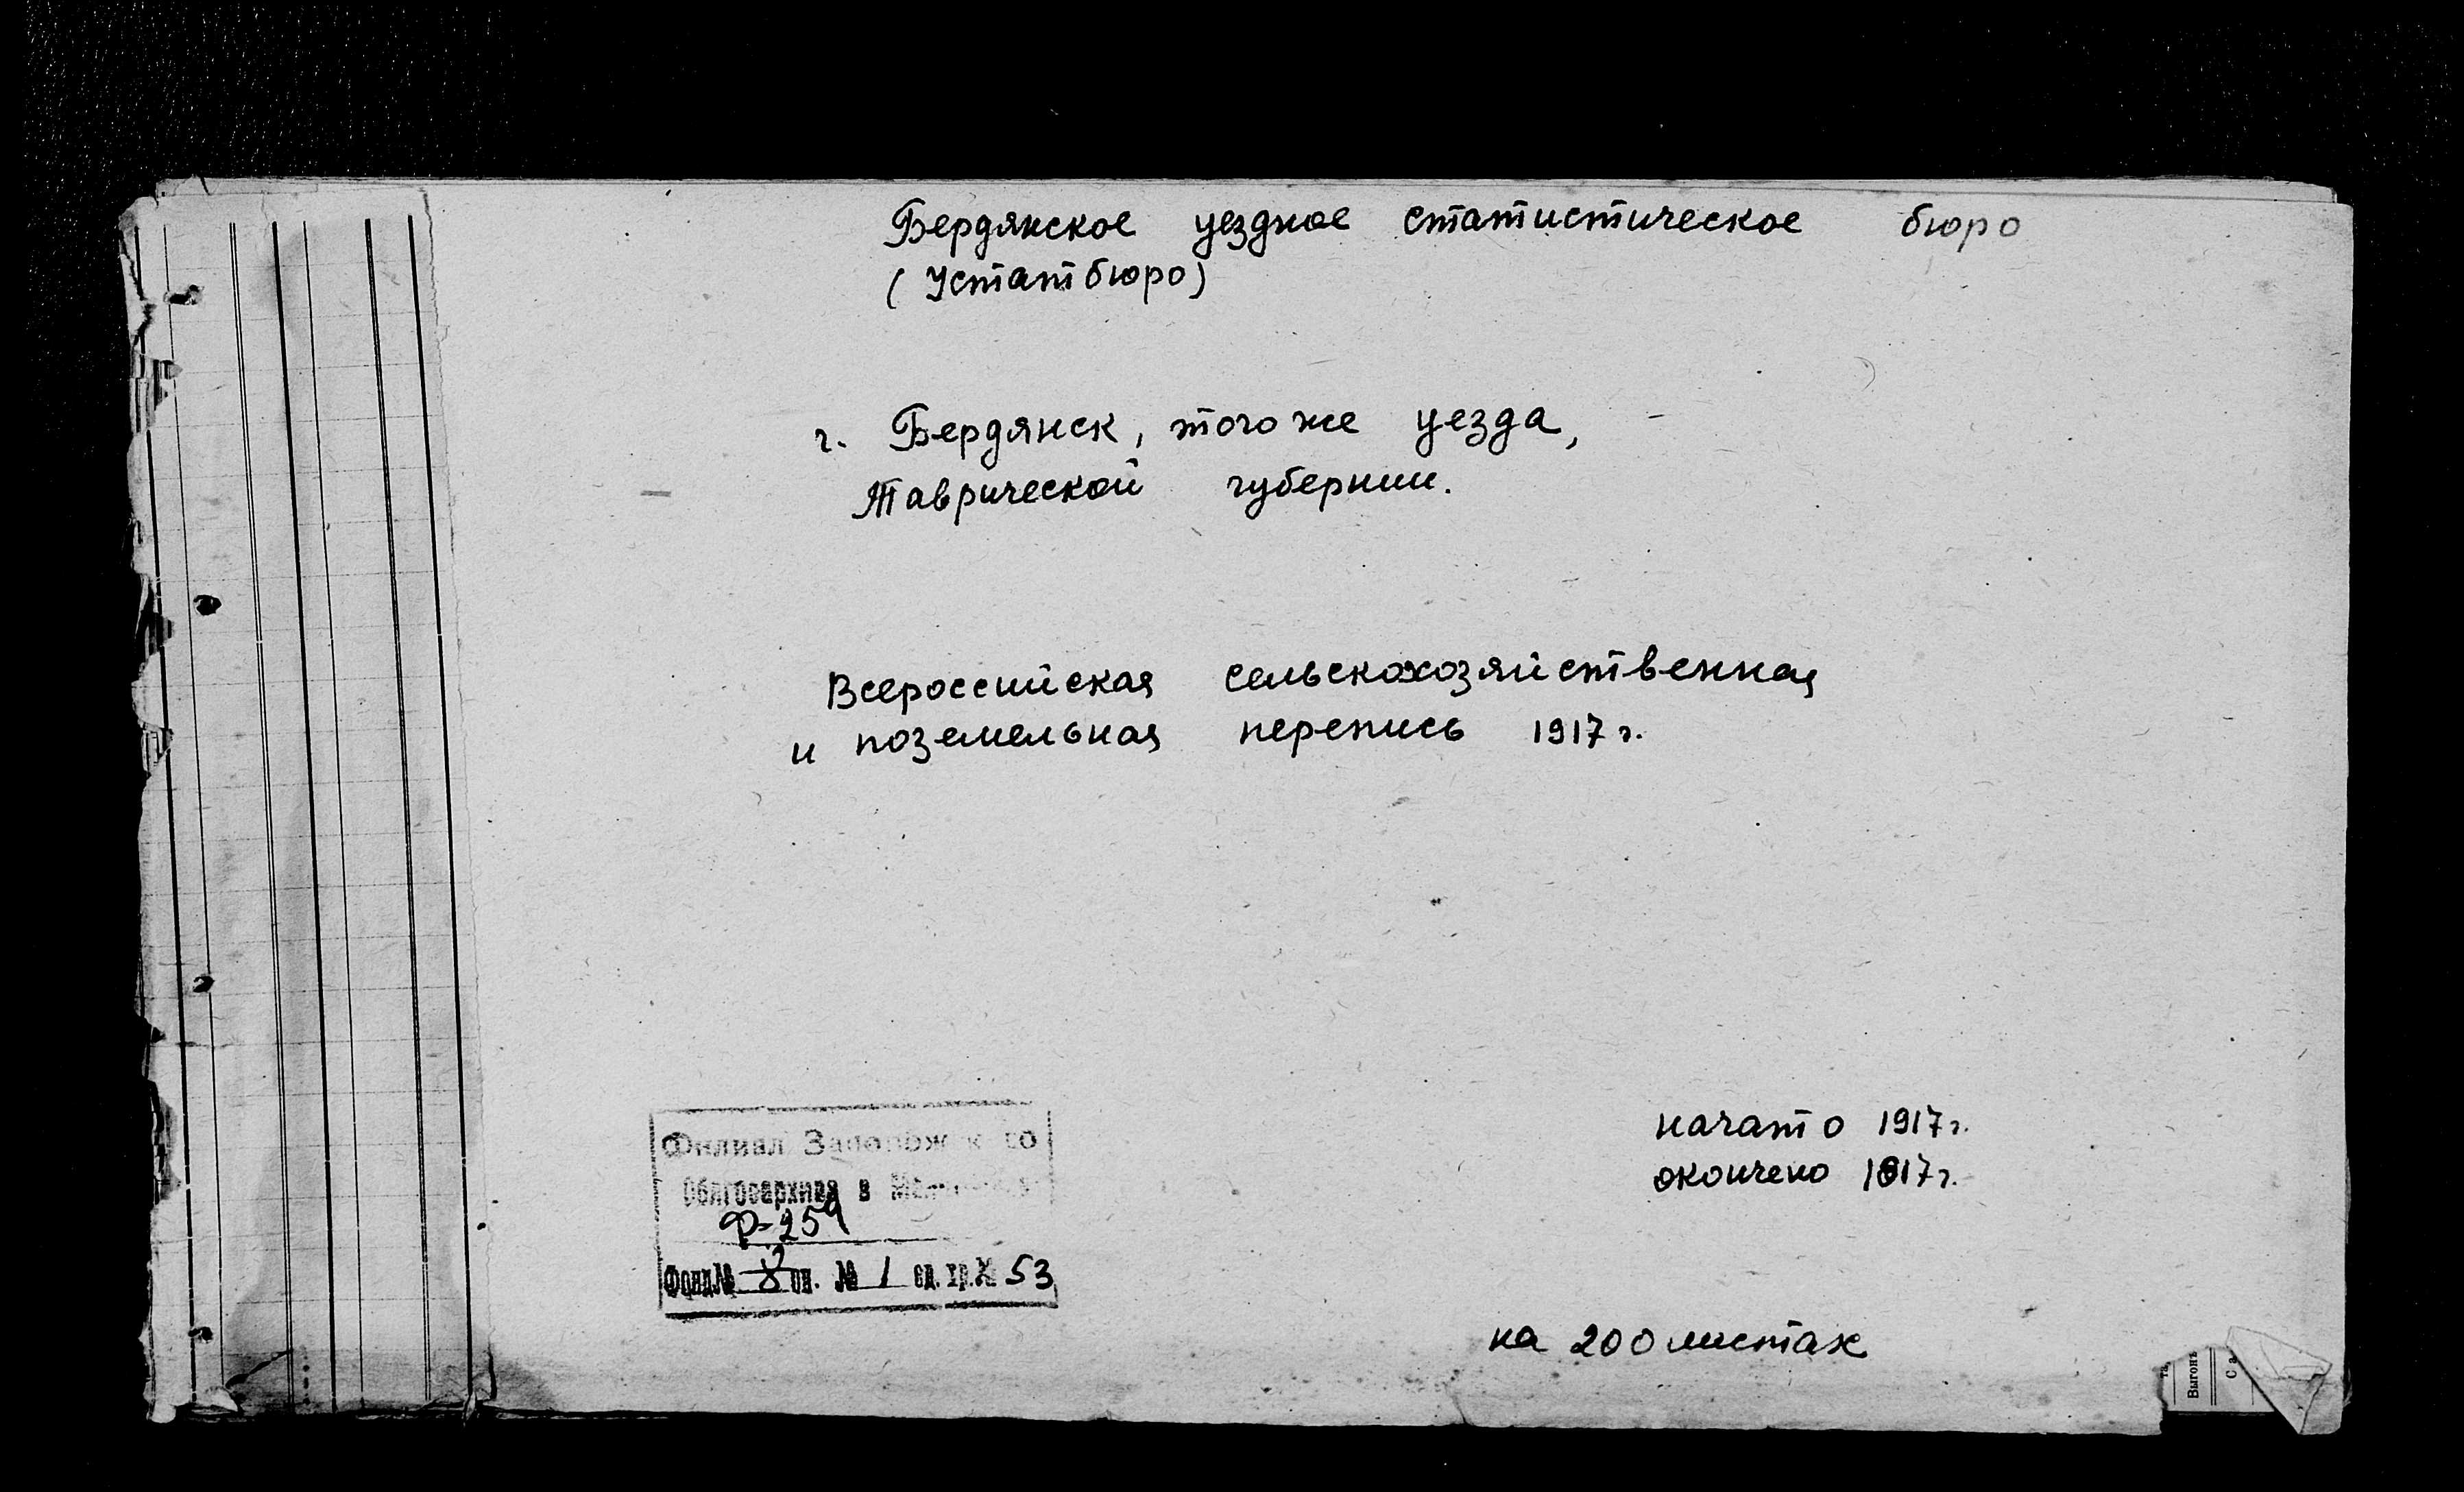 Бердянское уездное статистическое бюро
(Устатбюро)
г. Бердянск, того же уезда,
Таврической губернии.
Всероссийская сельскохозяйственная
и поземельная перепись 1917 г.
начато 1917 г.
окончено 1917 г.
на 200 листах
Филиал
Облгосархива в
Р-259
Фонд № оп. № 1 ед. хр. № 53
Выгонъ